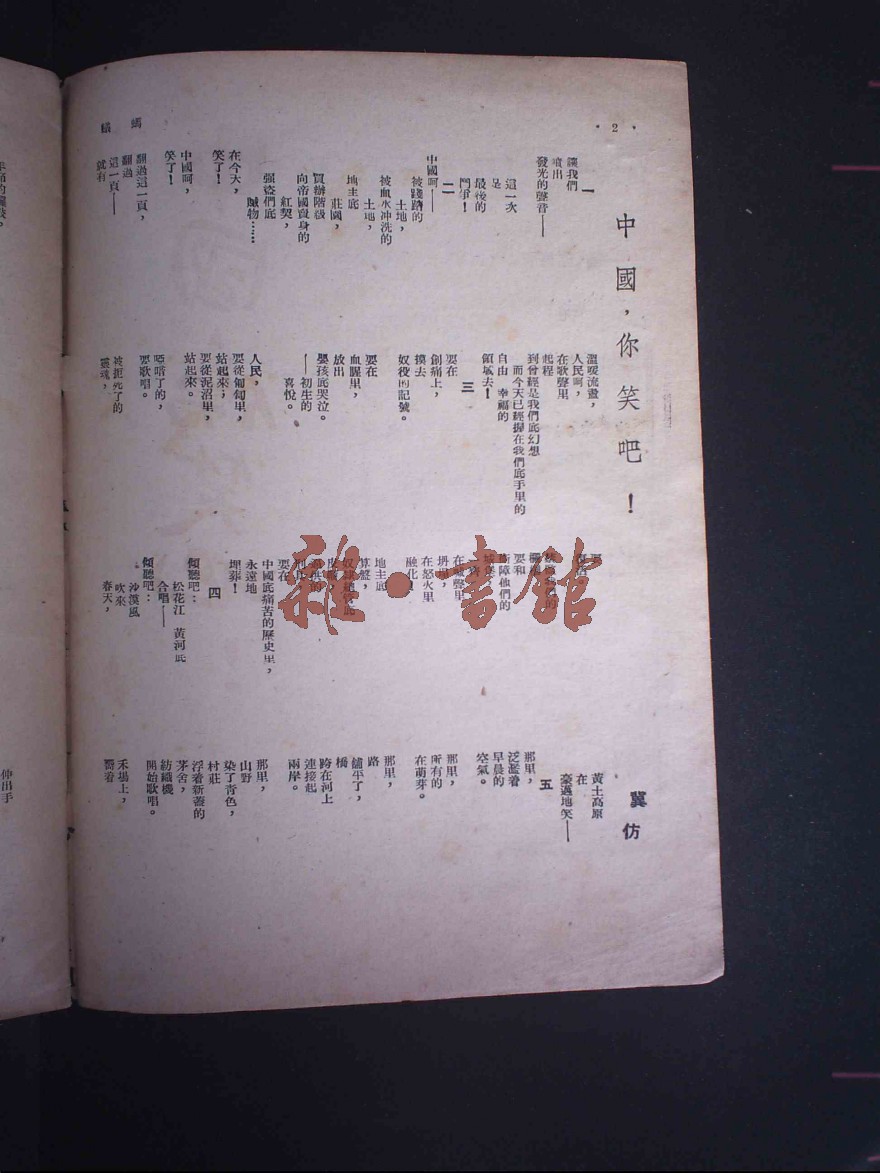 ·2·
螞蟻
中國，你笑吧！
冀仿
一
讓我們
噴出
發光的聲音——
這一次
是
最後的
鬥爭！
二
中國呵——
被踐踏的
土地，
被血水冲洗的
土地，
地主底
莊園，
買辦階級
向帝國賣身的
紅契，
强盜們底
贓物……
在今天，
笑了！
中國呵，
笑了！
翻過這一頁，
翻過
這一頁——
就有
溫暖流盪，
人民呵，
在歌聲里
起程
到曾經是我們底幻想
而今天已經握在我們底手里的
自由　幸福的
領域去！
三
要在
創痛上，
摸去
奴役的記號。
要在
血腥里，
放出
嬰孩底哭泣。
——初生的
喜悅。
人民，
要從匍匐里，
站起來；
要從泥沼里，
站起來。
啞嗒了的，
要歌唱。
被扼死了的
靈魂，
要和
要和
他們的
在
聲里
坍坍，
在怒火里
融化！
地主底
算盤，
要在
中國底痛苦的歷史里，
永遠地
埋葬！
四
傾聽吧：
松花江　黃河底
合唱——
傾聽吧：
沙漠風
吹來
春天，
黃土高原
在
豪邁地笑——
五
那里，
泛濫着
早晨的
空氣。
那里，
所有的
在萌芽。
那里，
路
舖平了，
橋
跨在河上
連接起
兩岸。
那里，
山野
染了青色，
村莊
浮着新蓋的
茅舍，
紡織機
開始歌唱。
禾場上，
嚮着
伸出手
雜·書館